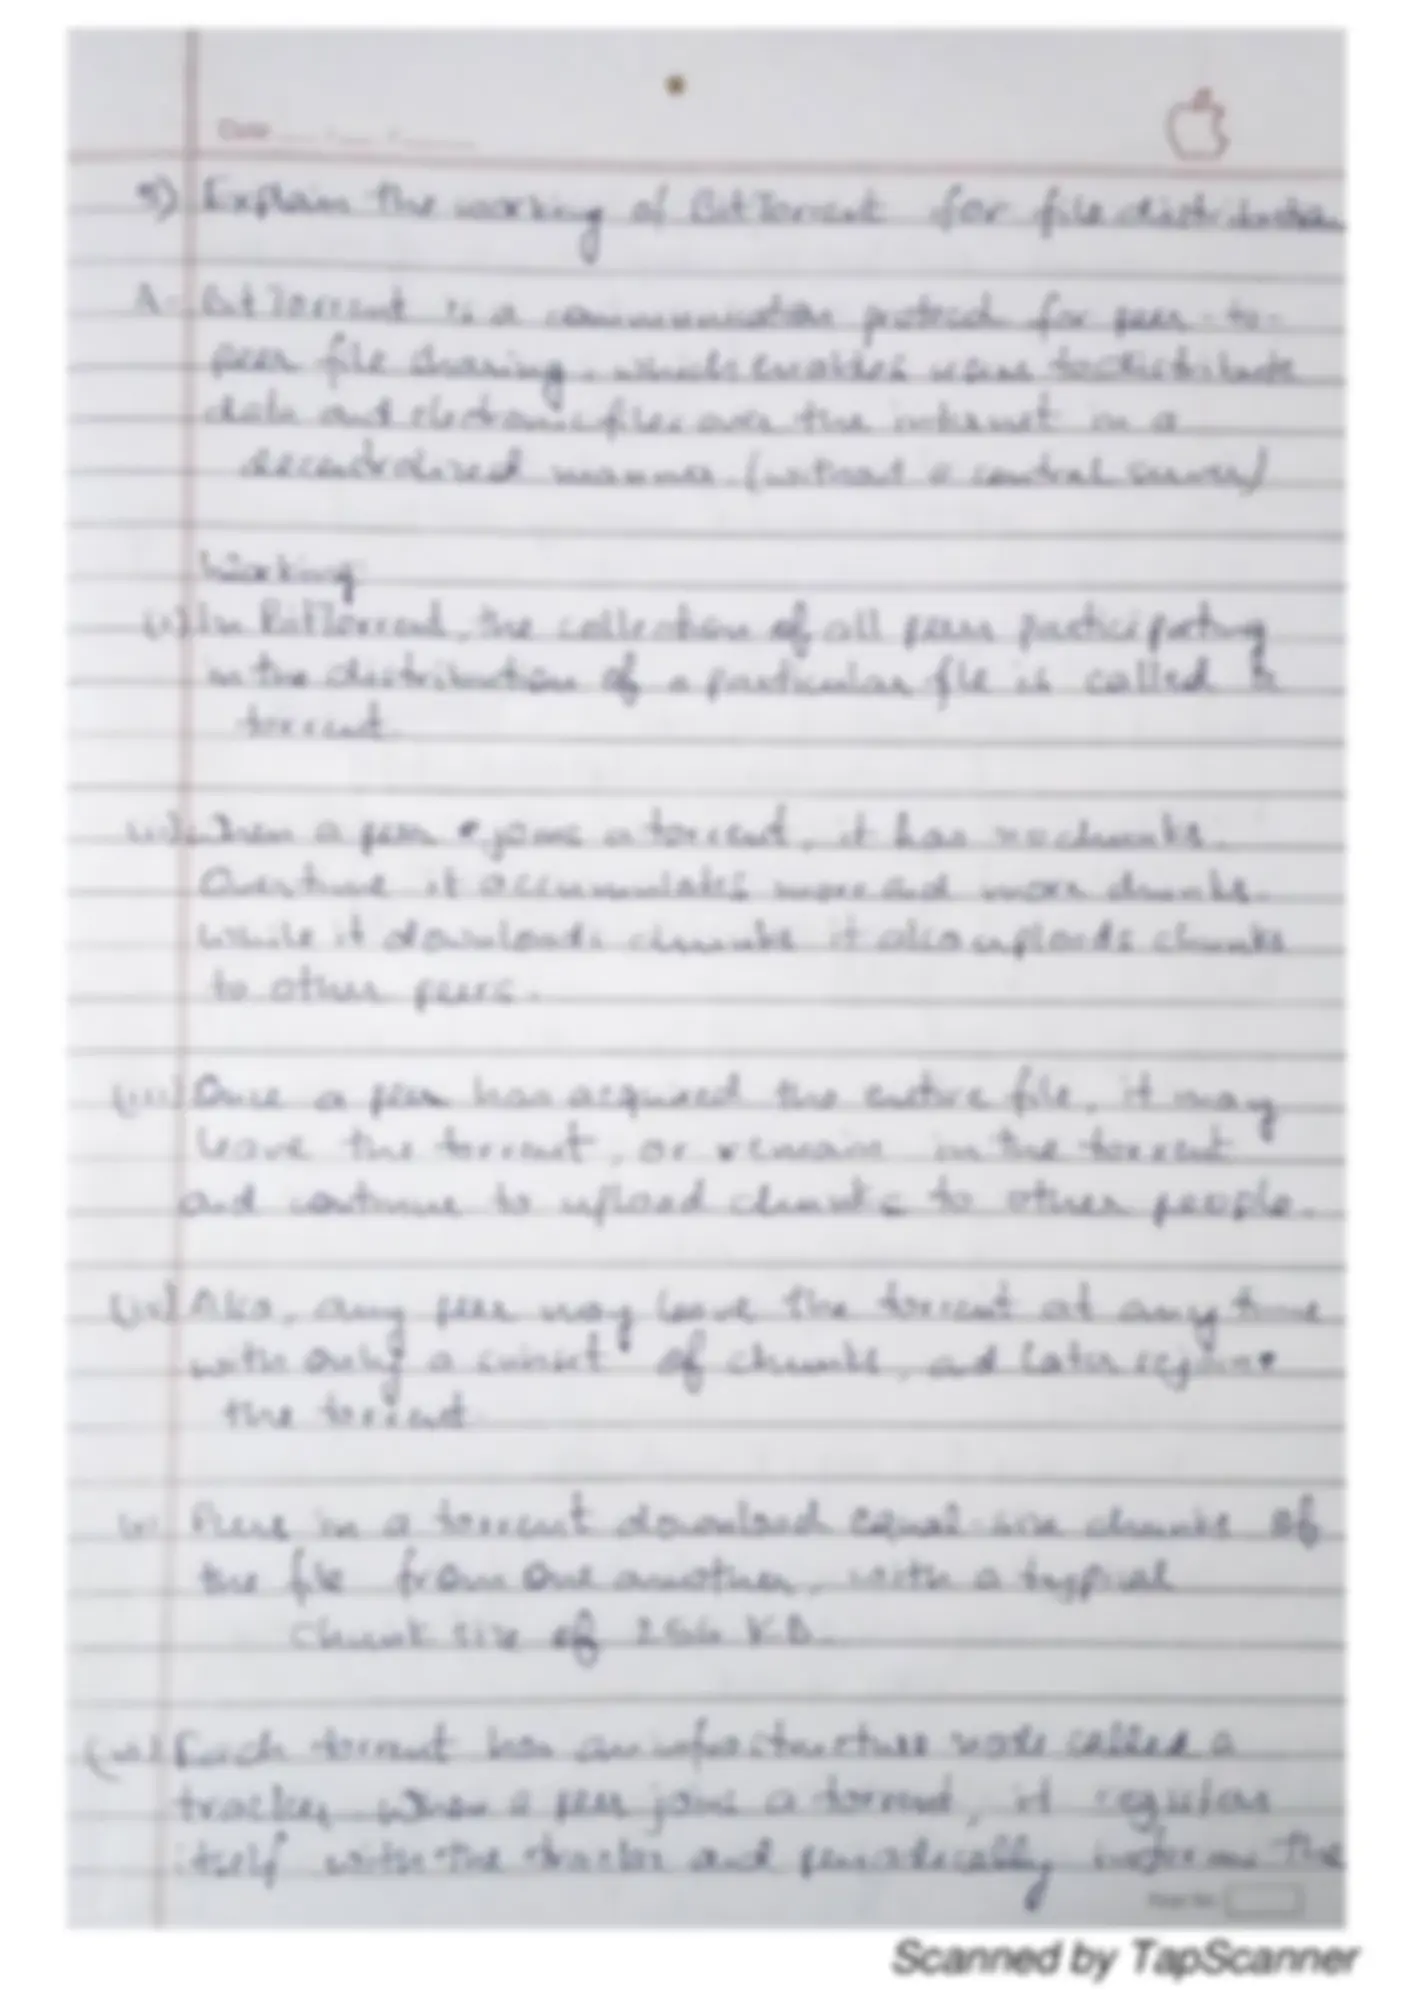 Date
5) Explain the working of BitTorrent for file distribution
A- BitTorrent is a communication protocol for peer-to-
peer file sharing, which enables users to distribute
data and electronic files over the internet in a
decentralized manner. (without a central server)
Working
(i) In BitTorrent, the collection of all peers participating
in the distribution of a particular file is called a
torrent.
(ii) When a peer joins a torrent, it has no chunks.
Overtime it accumulates more and more chunks.
While it downloads chunks it also uploads chunks
to other peers.
(iii) Once a peer has acquired the entire file, it may
leave the torrent, or remain in the torrent
and continue to upload chunks to other people.
(iv) Also, any peer may leave the torrent at any time
with only a subset of chunks, and later rejoin
the torrent.
(v) Peers in a torrent download equal-size chunks of
the file from one another, with a typical
chunk size of 256 KB.
(vi) Each torrent has an infrastructure node called a
tracker. When a peer joins a torrent, it register
itself with the tracker and periodically informs the
Page No.
Scanned by TapScanner